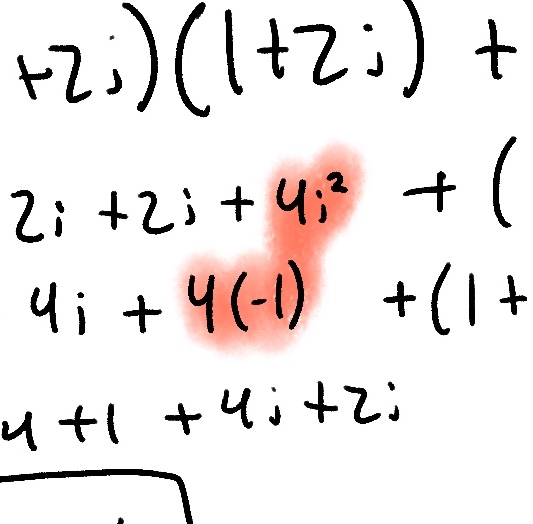 +2i)(1+2i) +
2i +2i + 4i² + (
4i + 4(-1) +(1+
4 +1 + 4i+2i